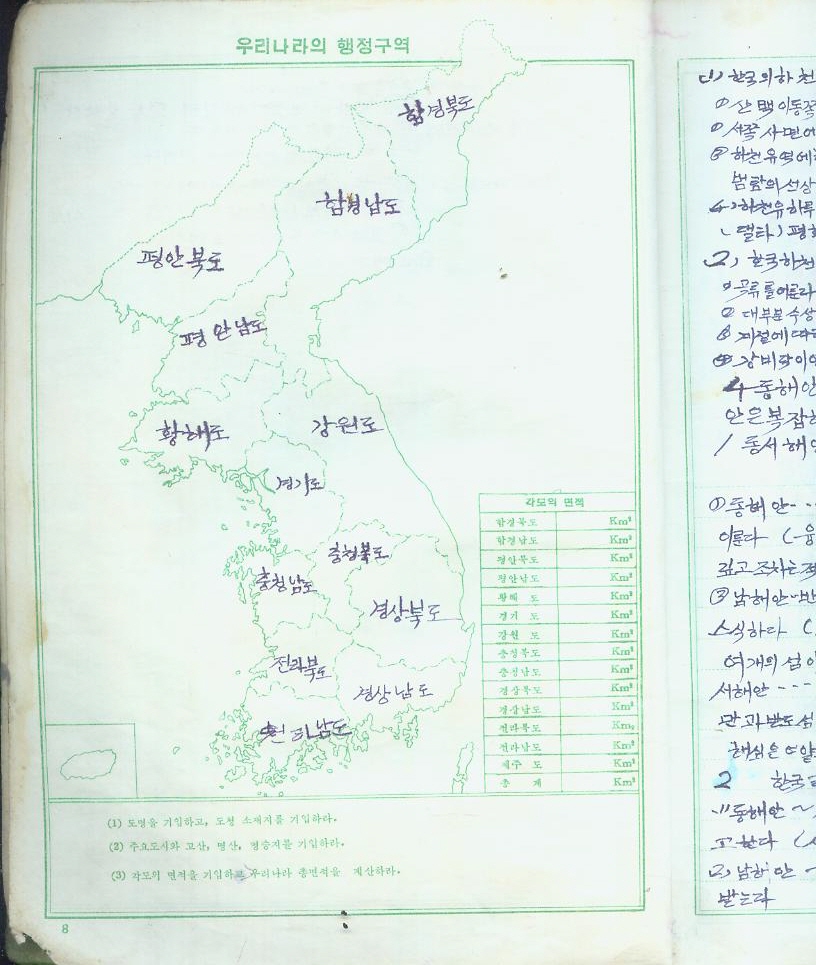 우리나라의 행정구역
함경북도
함경남도
평안북도
평안남도
황해도
강원도
경기도
충청북도
충청남도
경상북도
전라북도
경상남도
남도
각도의 면적
함경북도 Km²
함경남도 Km²
평안북도 Km²
평안남도 Km²
황해도 Km²
경기도 Km²
강원도 Km²
충청북도 Km²
충청남도 Km²
경상북도 Km²
경상남도 Km²
전라북도 Km²
전라남도 Km²
제주도 Km²
총계 Km²
(1) 도명을 기입하고, 도청 소재지를 기입하라.
(2) 주요도시와 고산, 명산, 명승지를 기입하라.
(3) 각도의 면적을 기입하고 우리나라 총면적을 계산하라.
8
한국의 하천
① 산맥이 동쪽
③ 하천유역에
범람의 선상
2) 한국하천
② 대부분 수상
4 동해안
안은 복잡
/ 동서해
① 동해안--
이룬다
③ 남해안
스식하다
여개의 섬이
서해안 ---
2 한국
동해안 ~
고 한다
2) 남해안
받는다